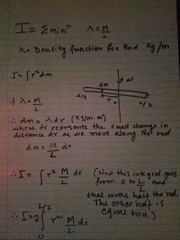 I = Σmiri² λ = M/L
λ = Density function for Rod Kg/m
I = ∫r²dm
dm
ω
-L/2 r L/2
if λ = M/L
∴ dm = λdr (Kg/m·m)
where dr represents the small change in
distance dr as we move along the rod
dm = M/L dr
∴ I = ∫ r² M/L dr (Since this integral goes
from 0 to L/2 and
that covers half the rod.
The other half is
equal too)
∴ I = 2∫ r² M/L dr
L/2
0